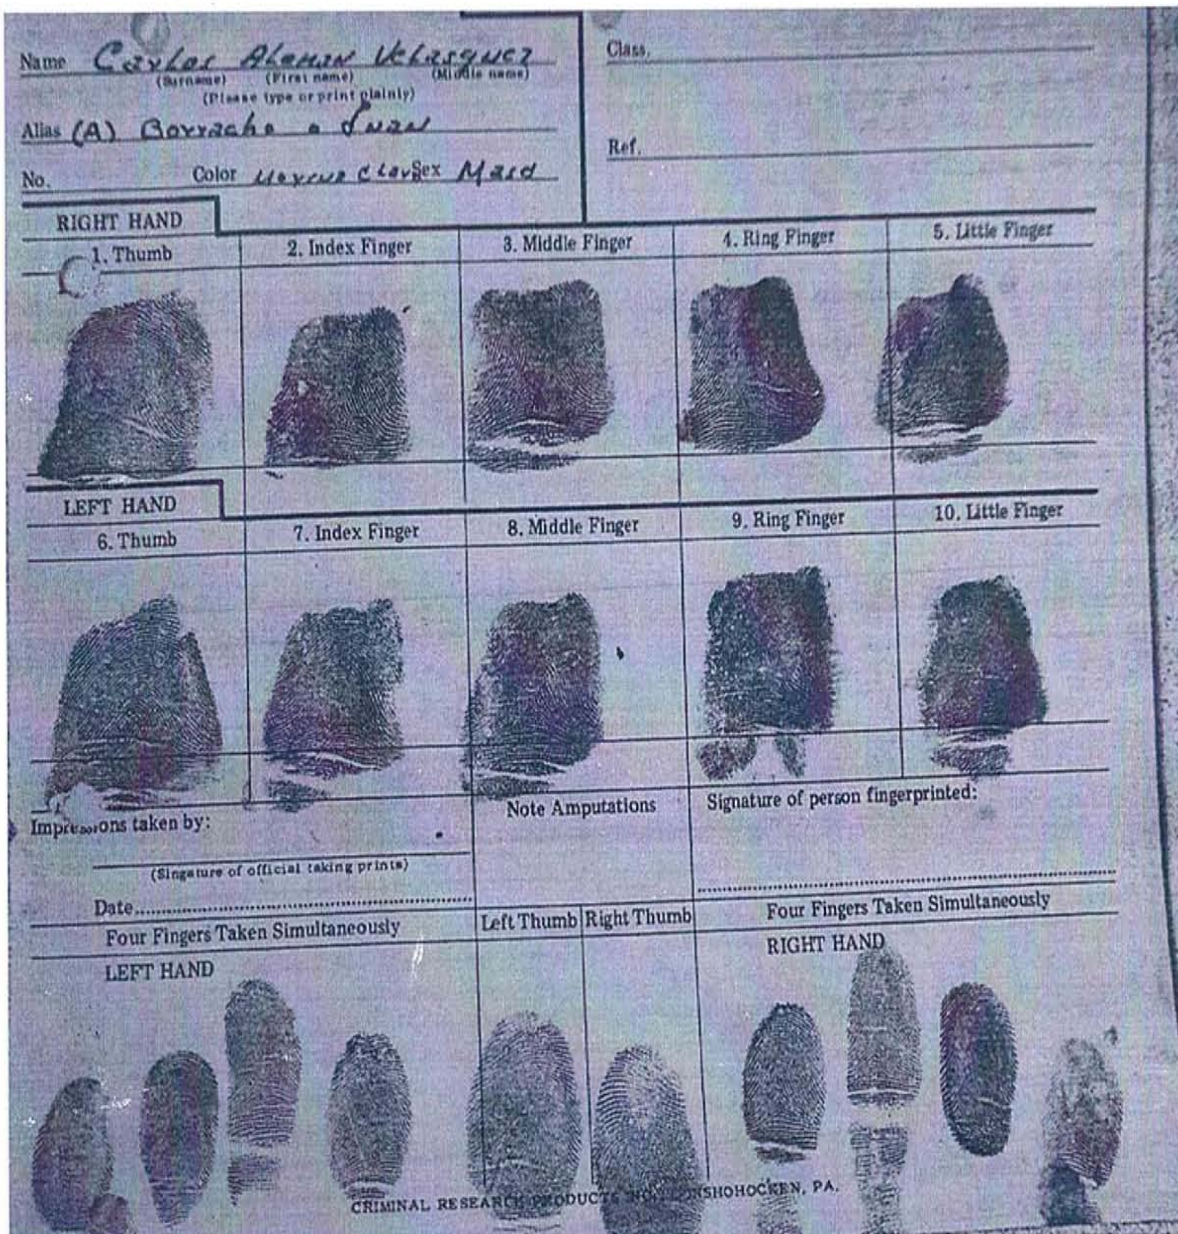 Name Carlos Aleman Velasquez
(Surname) (First name) (Middle name)
(Please type or print plainly)
Alias (A) Borracho o Juan
No. Color Sex
Class.
Ref.
RIGHT HAND
1. Thumb 2. Index Finger 3. Middle Finger 4. Ring Finger 5. Little Finger
LEFT HAND
6. Thumb 7. Index Finger 8. Middle Finger 9. Ring Finger 10. Little Finger
Impressions taken by:
(Singature of official taking prints)
Date
Note Amputations
Signature of person fingerprinted:
Four Fingers Taken Simultaneously
LEFT HAND
Left Thumb Right Thumb
Four Fingers Taken Simultaneously
RIGHT HAND
CRIMINAL RESEARCH PRODUCTS CONSHOHOCKEN, PA.